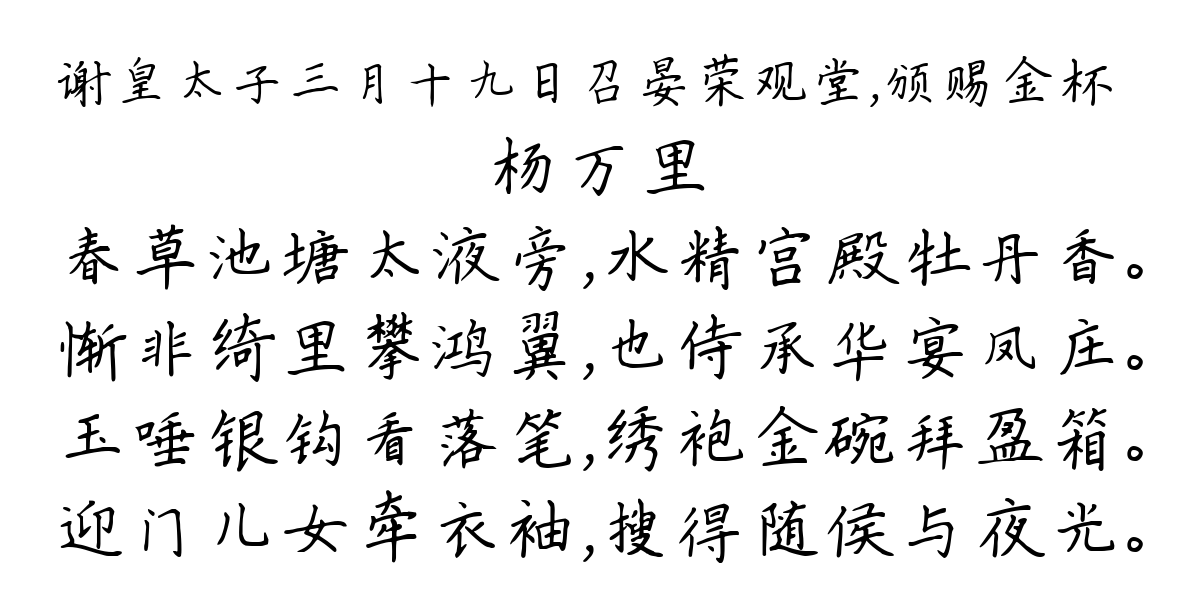 谢皇太子三月十九日召晏荣观堂,颁赐金杯
杨万里
春草池塘太液旁,水精宫殿牡丹香。
惭非绮里攀鸿翼,也侍承华宴凤庄。
玉唾银钩看落笔,绣袍金碗拜盈箱。
迎门儿女牵衣袖,搜得随侯与夜光。